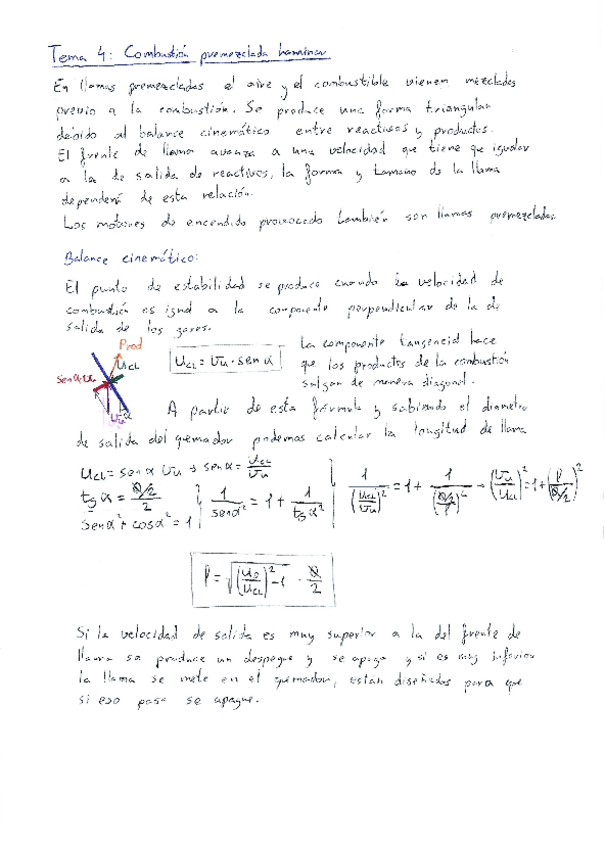 Tema 4: Combustión premezclada laminar
En llamas premezcladas el aire y el combustible vienen mezclados
previo a la combustión. Se produce una forma triangular
debido al balance cinemático entre reactivos y productos.
El frente de llama avanza a una velocidad que tiene que igualar
a la de salida de reactivos, la forma y tamaño de la llama
dependerá de esta relación.
Los motores de encendido provocado también son llamas premezcladas.
Balance cinemático:
El punto de estabilidad se produce cuando la velocidad de
combustión es igual a la componente perpendicular de la de
salida de los gases.
Prod
UCL
senα·Vu
Vu
α
UCL = Vu · sen α
La componente tangencial hace
que los productos de la combustión
salgan de manera diagonal.
A partir de esta fórmula y sabiendo el diametro
de salida del quemador podemos calcular la longitud de llama
UCL = sen α Vu → sen α = UCL/Vu
tg α = (Ø/2)/2
sen α² + cos α² = 1
1/sen α² = 1 + 1/tg α²
1/(UCL/Vu)² = 1 + 1/((Ø/2)/l)² → (Vu/UCL)² = 1 + (l/(Ø/2))²
l = √((U0/UCL)² - 1) · Ø/2
Si la velocidad de salida es muy superior a la del frente de
llama se produce un despegue y se apaga y si es muy inferior
la llama se mete en el quemador, están diseñados para que
si eso pasa se apague.